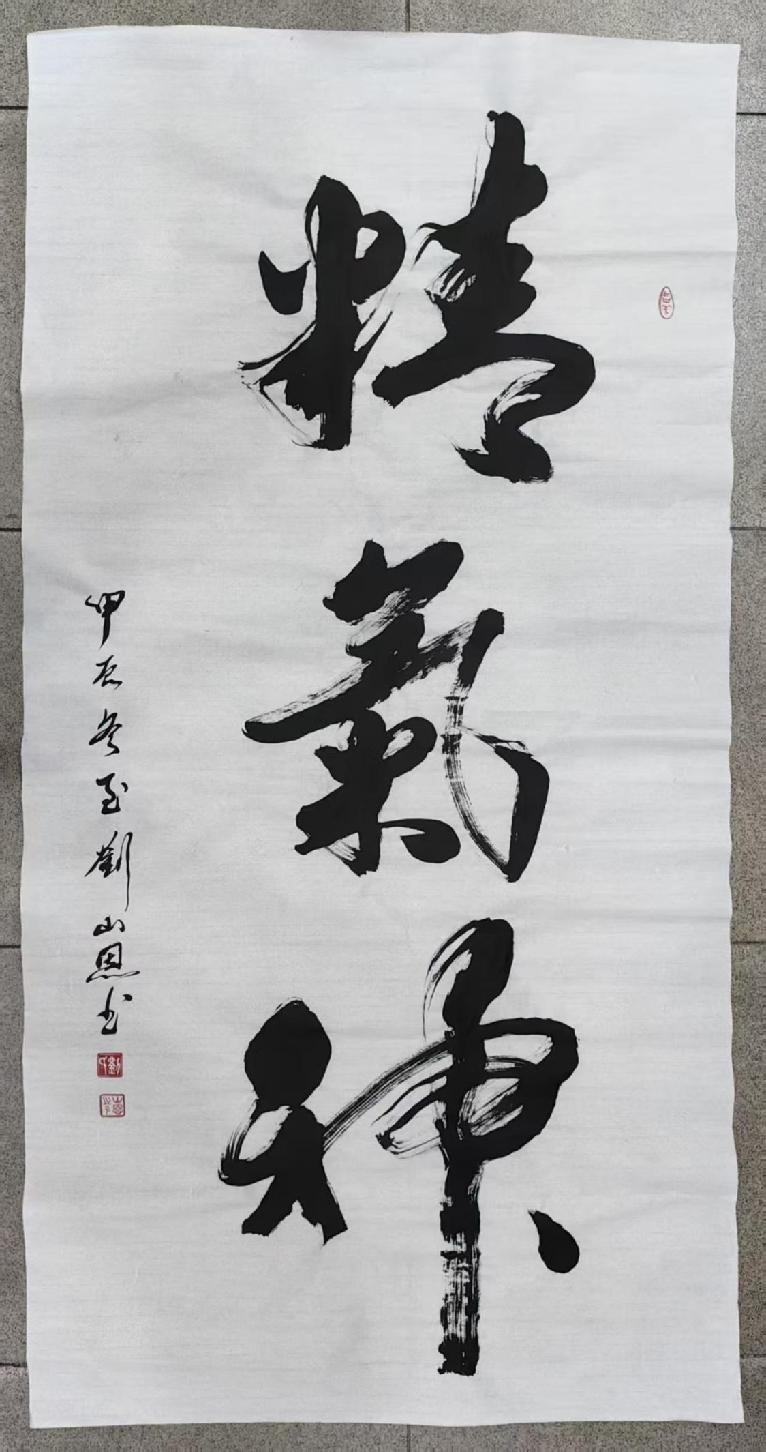 精氣神
甲辰冬至劉山恩书